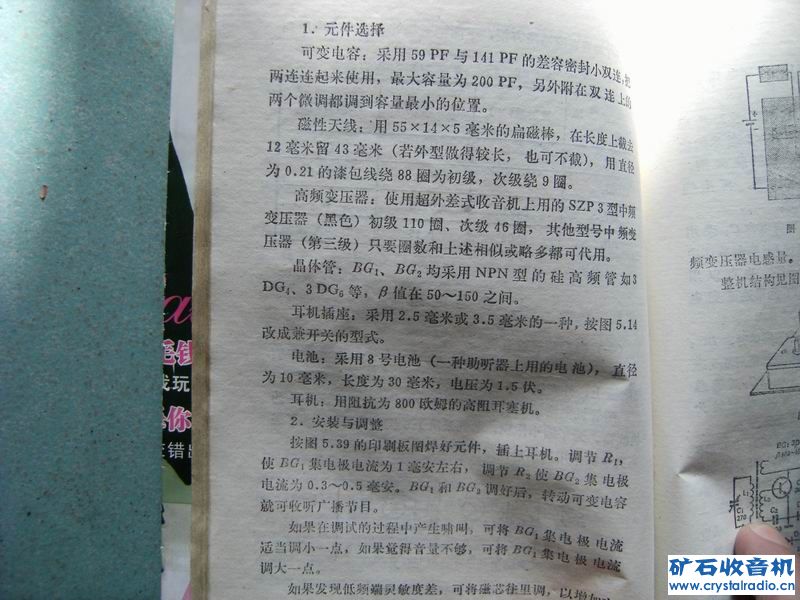 1. 元件选择
可变电容：采用59 PF 与141 PF 的差容密封小双连，把
两连连起来使用，最大容量为200 PF，另外附在双连上的
两个微调都调到容量最小的位置。
磁性天线：用55×14×5 毫米的扁磁棒，在长度上截去
12毫米留43毫米（若外型做得较长，也可不截），用直径
为0.21的漆包线绕88圈为初级，次级绕9圈。
高频变压器：使用超外差式收音机上用的SZP3型中频
变压器（黑色）初级110圈、次级46圈，其他型号中频变
压器（第三级）只要圈数和上述相似或略多都可代用。
晶体管：BG₁、BG₂均采用NPN型的硅高频管如3
DG₄、3 DG₆等，β值在50～150之间。
耳机插座：采用2.5毫米或3.5毫米的一种，按图5.14
改成兼开关的型式。
电池：采用8号电池（一种助听器上用的电池），直径
为10毫米，长度为30毫米，电压为1.5伏。
耳机：用阻抗为800欧姆的高阻耳塞机。
2. 安装与调整
按图5.39的印刷板图焊好元件，插上耳机。调节R₁，
使BG₁集电极电流为1毫安左右，调节R₂使BG₂集电极
电流为0.3～0.5毫安。BG₁和BG₂调好后，转动可变电容
就可收听广播节目。
如果在调试的过程中产生啸叫，可将BG₁集电极电流
适当调小一点，如果觉得音量不够，可将BG₁集电极电流
调大一点。
如果发现低频端灵敏度差，可将磁芯往里调，以增加
图
频变压器电感量。
整机结构见图
BG₁
C₁
270
L₁
L₂
C₂
毛钱
戈玩
你
在错出
矿石收音机
www.crystalradio.cn